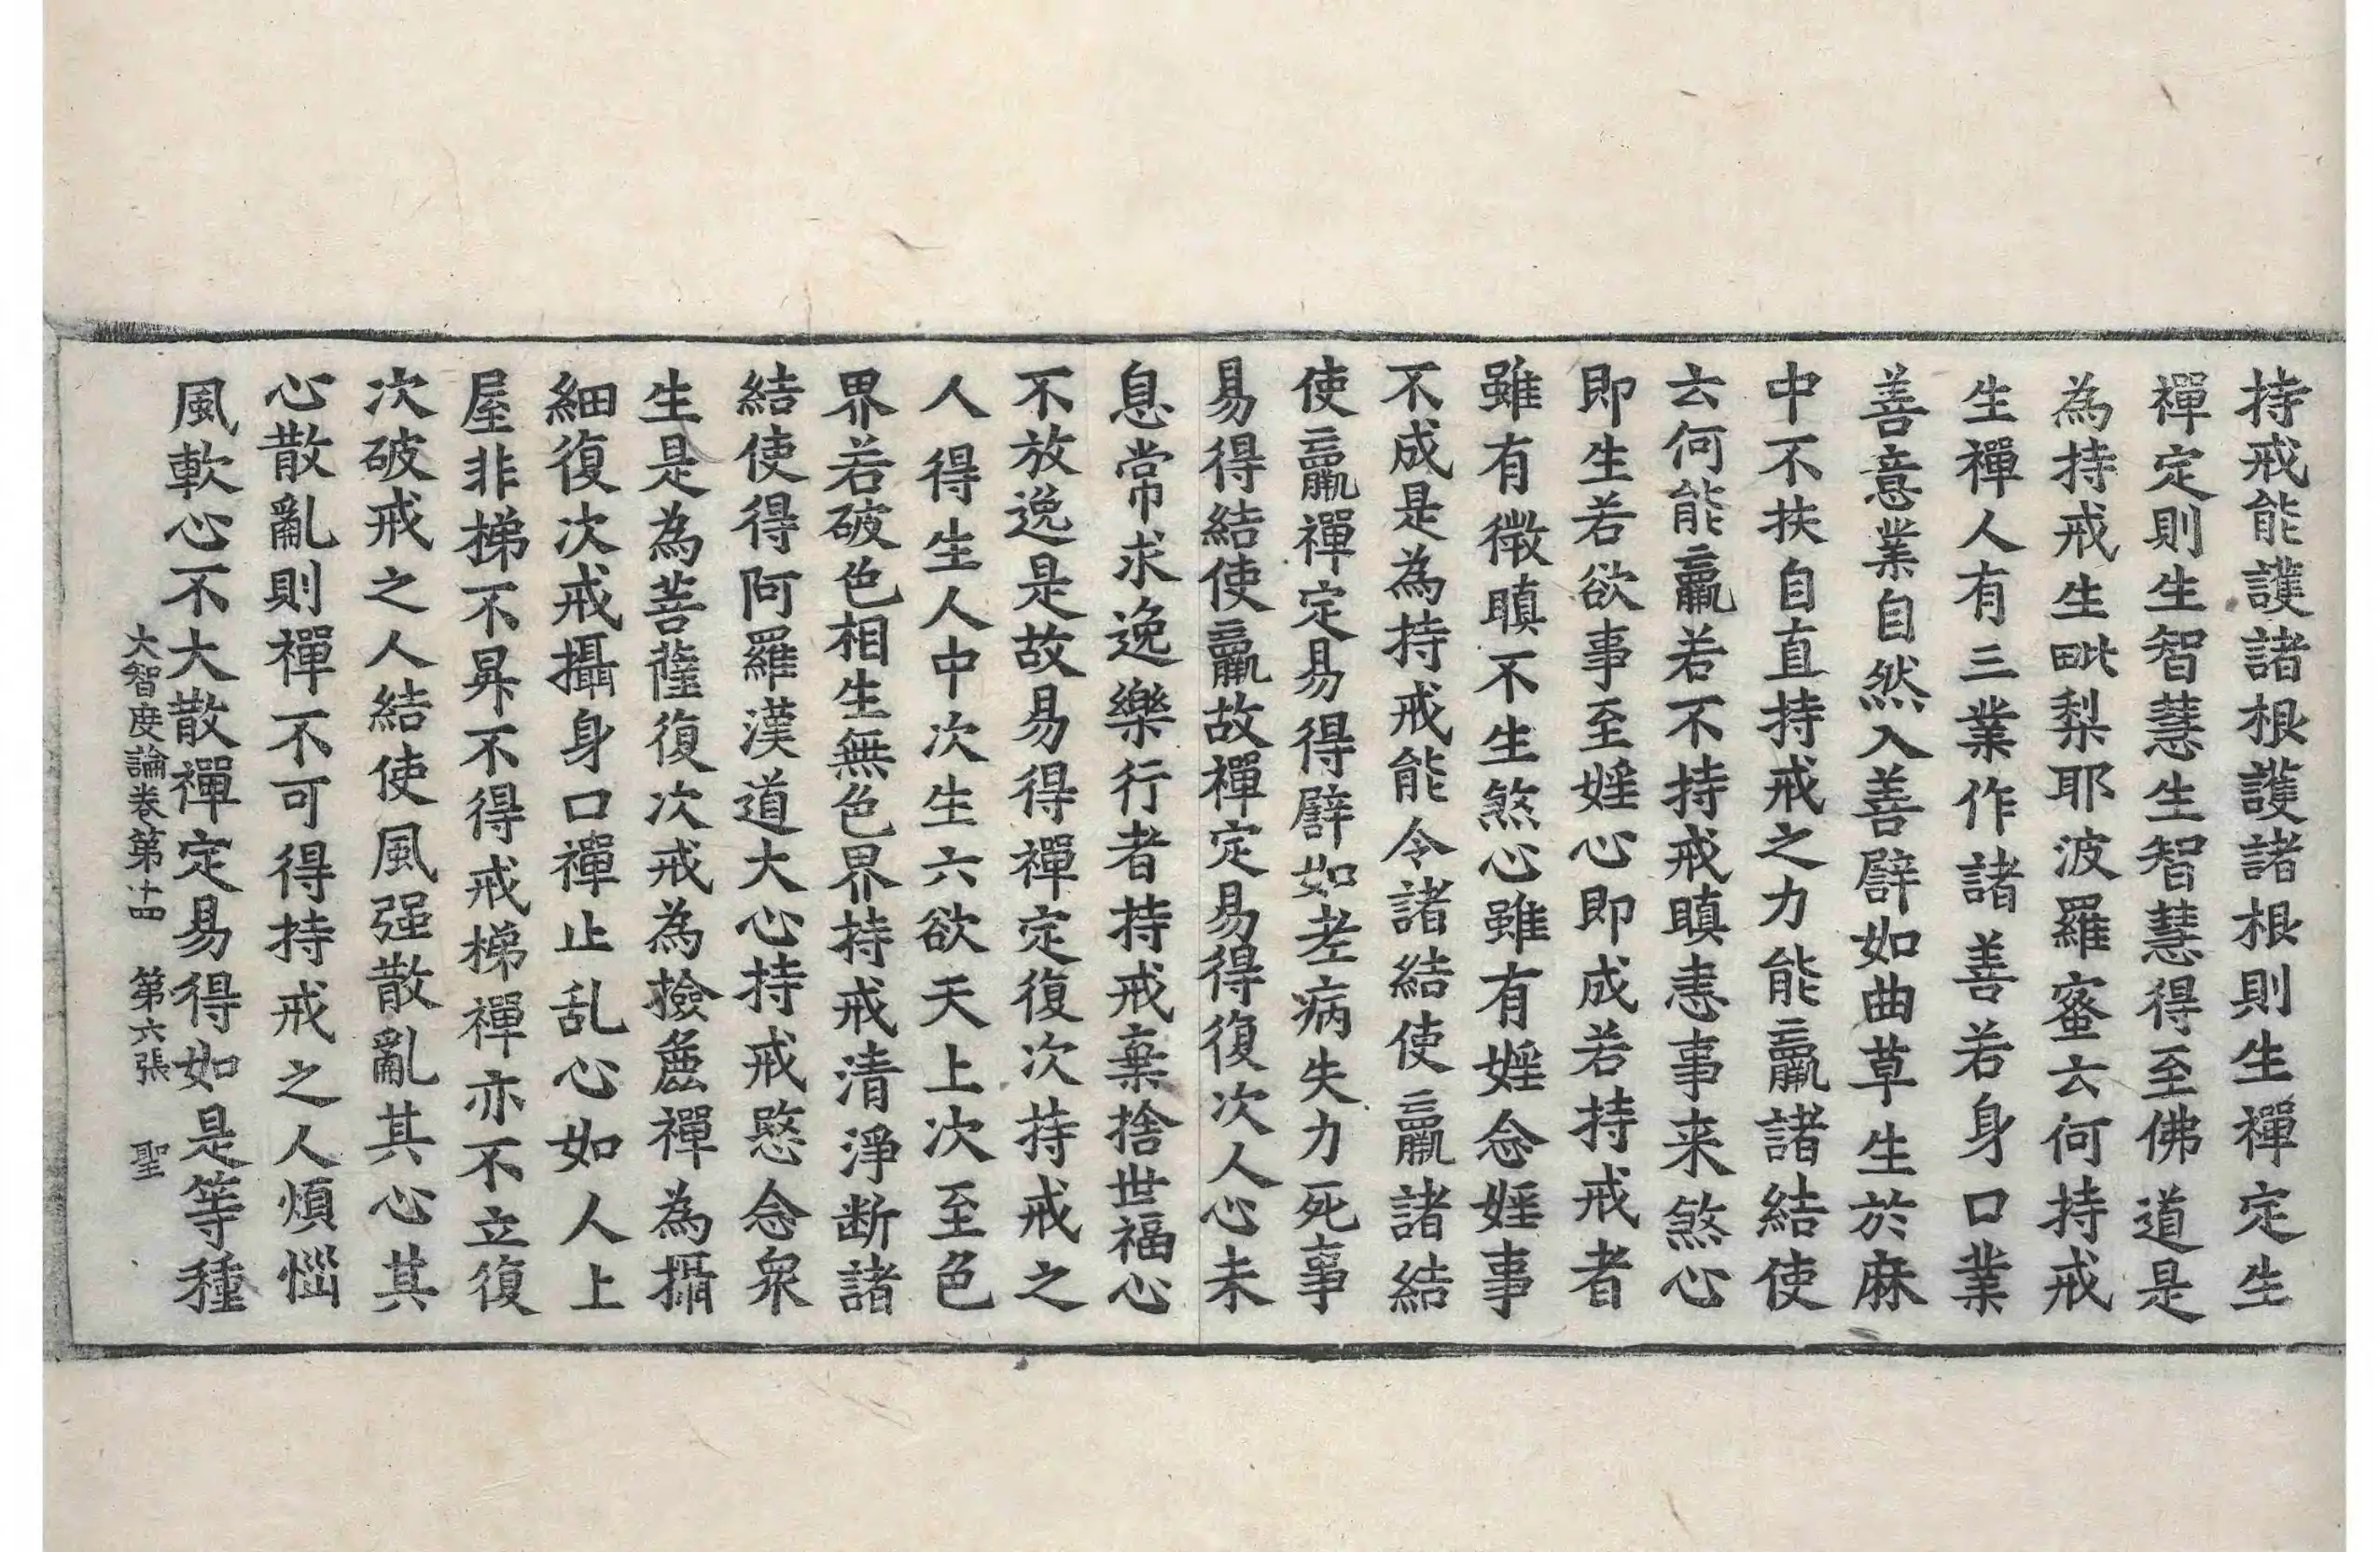 持戒能護諸根護諸根則生禪定生
禪定則生智慧生智慧得至佛道是
為持戒生毗梨耶波羅蜜云何持戒
生禪人有三業作諸善若身口業
善意業自然入善譬如曲草生於麻
中不扶自直持戒之力能羸諸結使
云何能羸若不持戒瞋恚事来煞心
即生若欲事至婬心即成若持戒者
雖有微瞋不生煞心雖有婬念婬事
不成是為持戒能令諸結使羸諸結
使羸禪定易得譬如老病失力死事
易得結使羸故禪定易得復次人心未
息常求逸樂行者持戒棄捨世福心
不放逸是故易得禪定復次持戒之
人得生人中次生六欲天上次至色
界若破色相生無色界持戒清淨断諸
結使得阿羅漢道大心持戒愍念衆
生是為菩薩復次戒為撿麁禪為攝
細復次戒攝身口禪止乱心如人上
屋非梯不昇不得戒梯禪亦不立復
次破戒之人結使風强散亂其心其
心散亂則禪不可得持戒之人煩惱
風軟心不大散禪定易得如是等種
大智度論卷第十四 第六張 聖